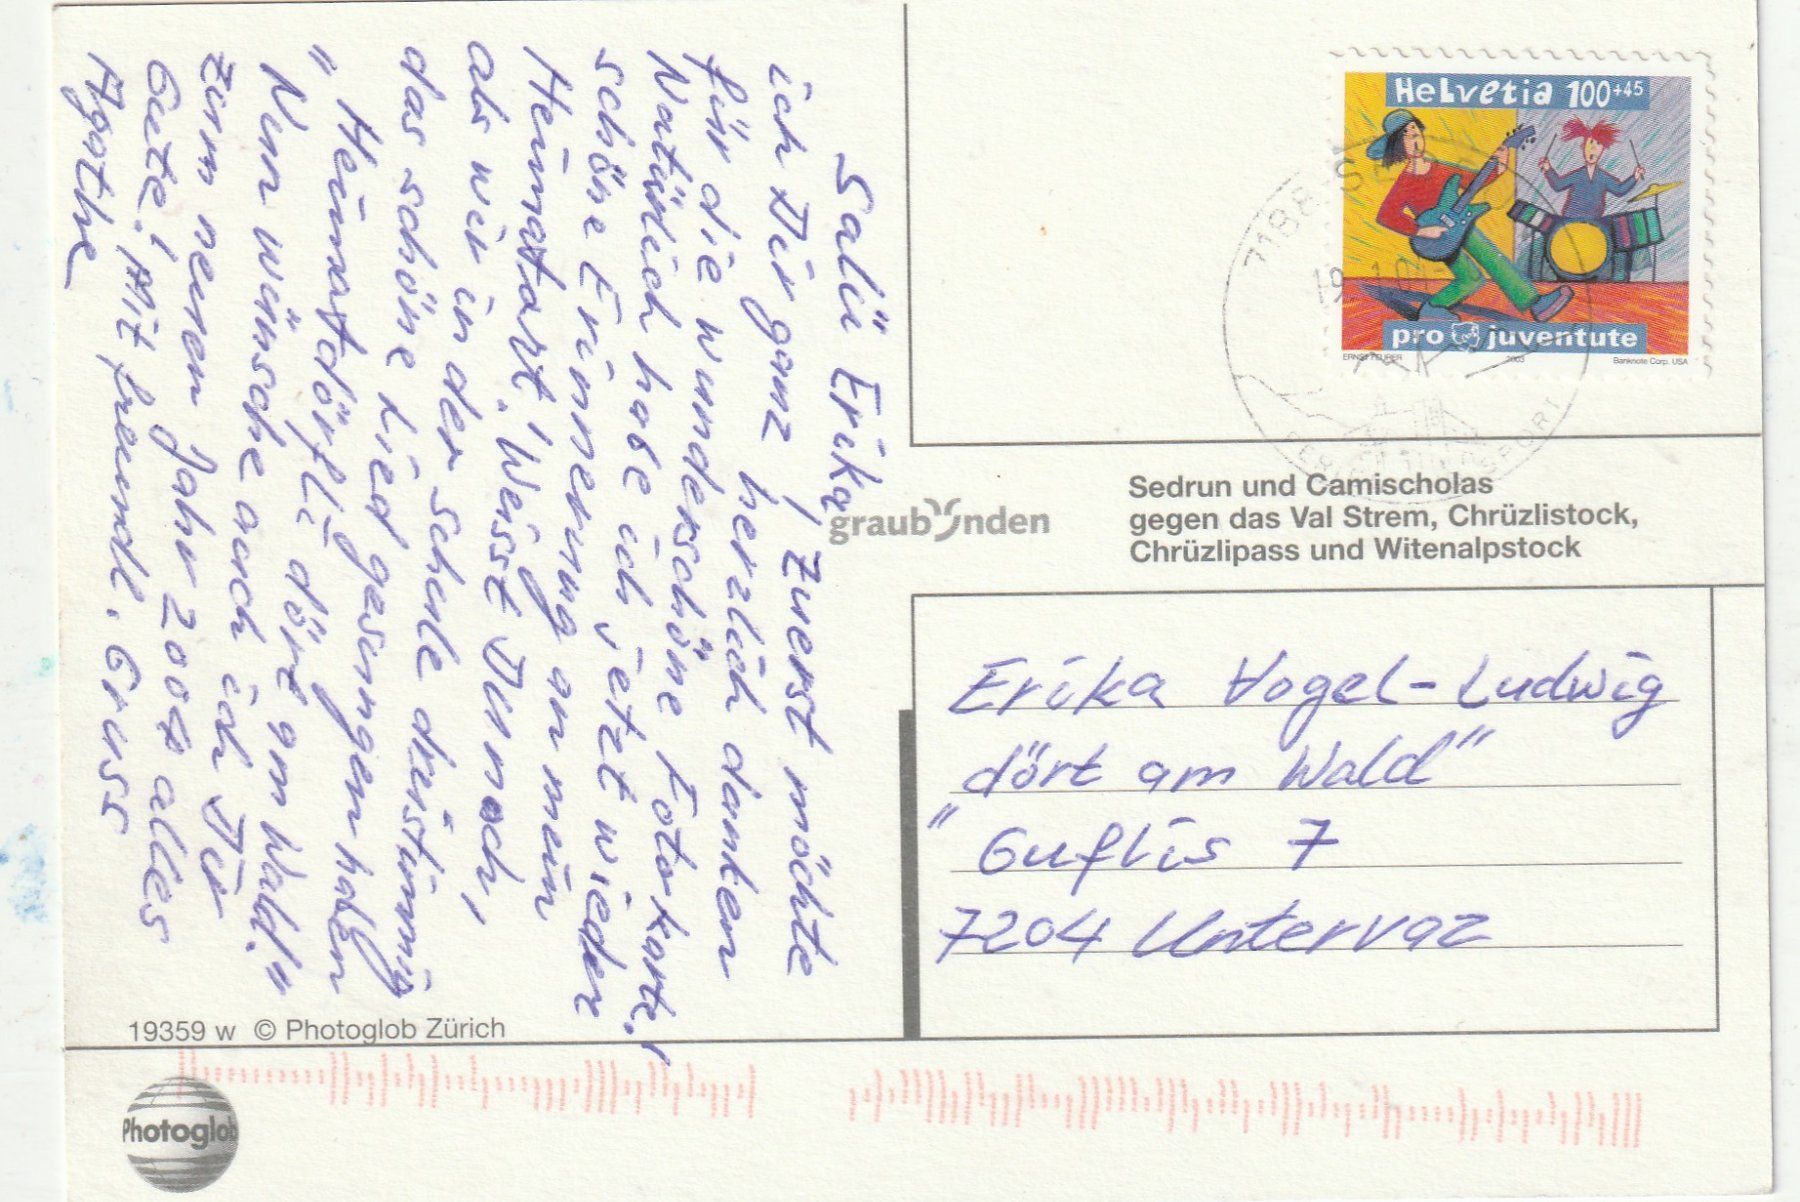 Salü Erika, zuerst möchte
ich Dir ganz herzlich danken
für die wunderschöne Fotokarte!
Natürlich habe ich jetzt wieder
schöne Erinnerung an mein
Heimatort! Weisst Du noch,
als wir in der Schule dreistimmig
das schöne Lied gesungen haben
"Heimatdörfli dört am Wald."
Nun wünsche auch ich Dir
zum neuen Jahr 2004 alles
Gute! Mit freundl. Gruss
Agathe
Helvetia 100+45
pro juventute
ERNST FEURER 2003 Banknote Corp. USA
7188 SE
19. 1.04
graubünden
Sedrun und Camischolas
gegen das Val Strem, Chrüzlistock,
Chrüzlipass und Witenalpstock
Erika Vogel-Ludwig
dört am Wald"
"Guflis 7
7204 Untervaz
19359 w © Photoglob Zürich
Photoglob